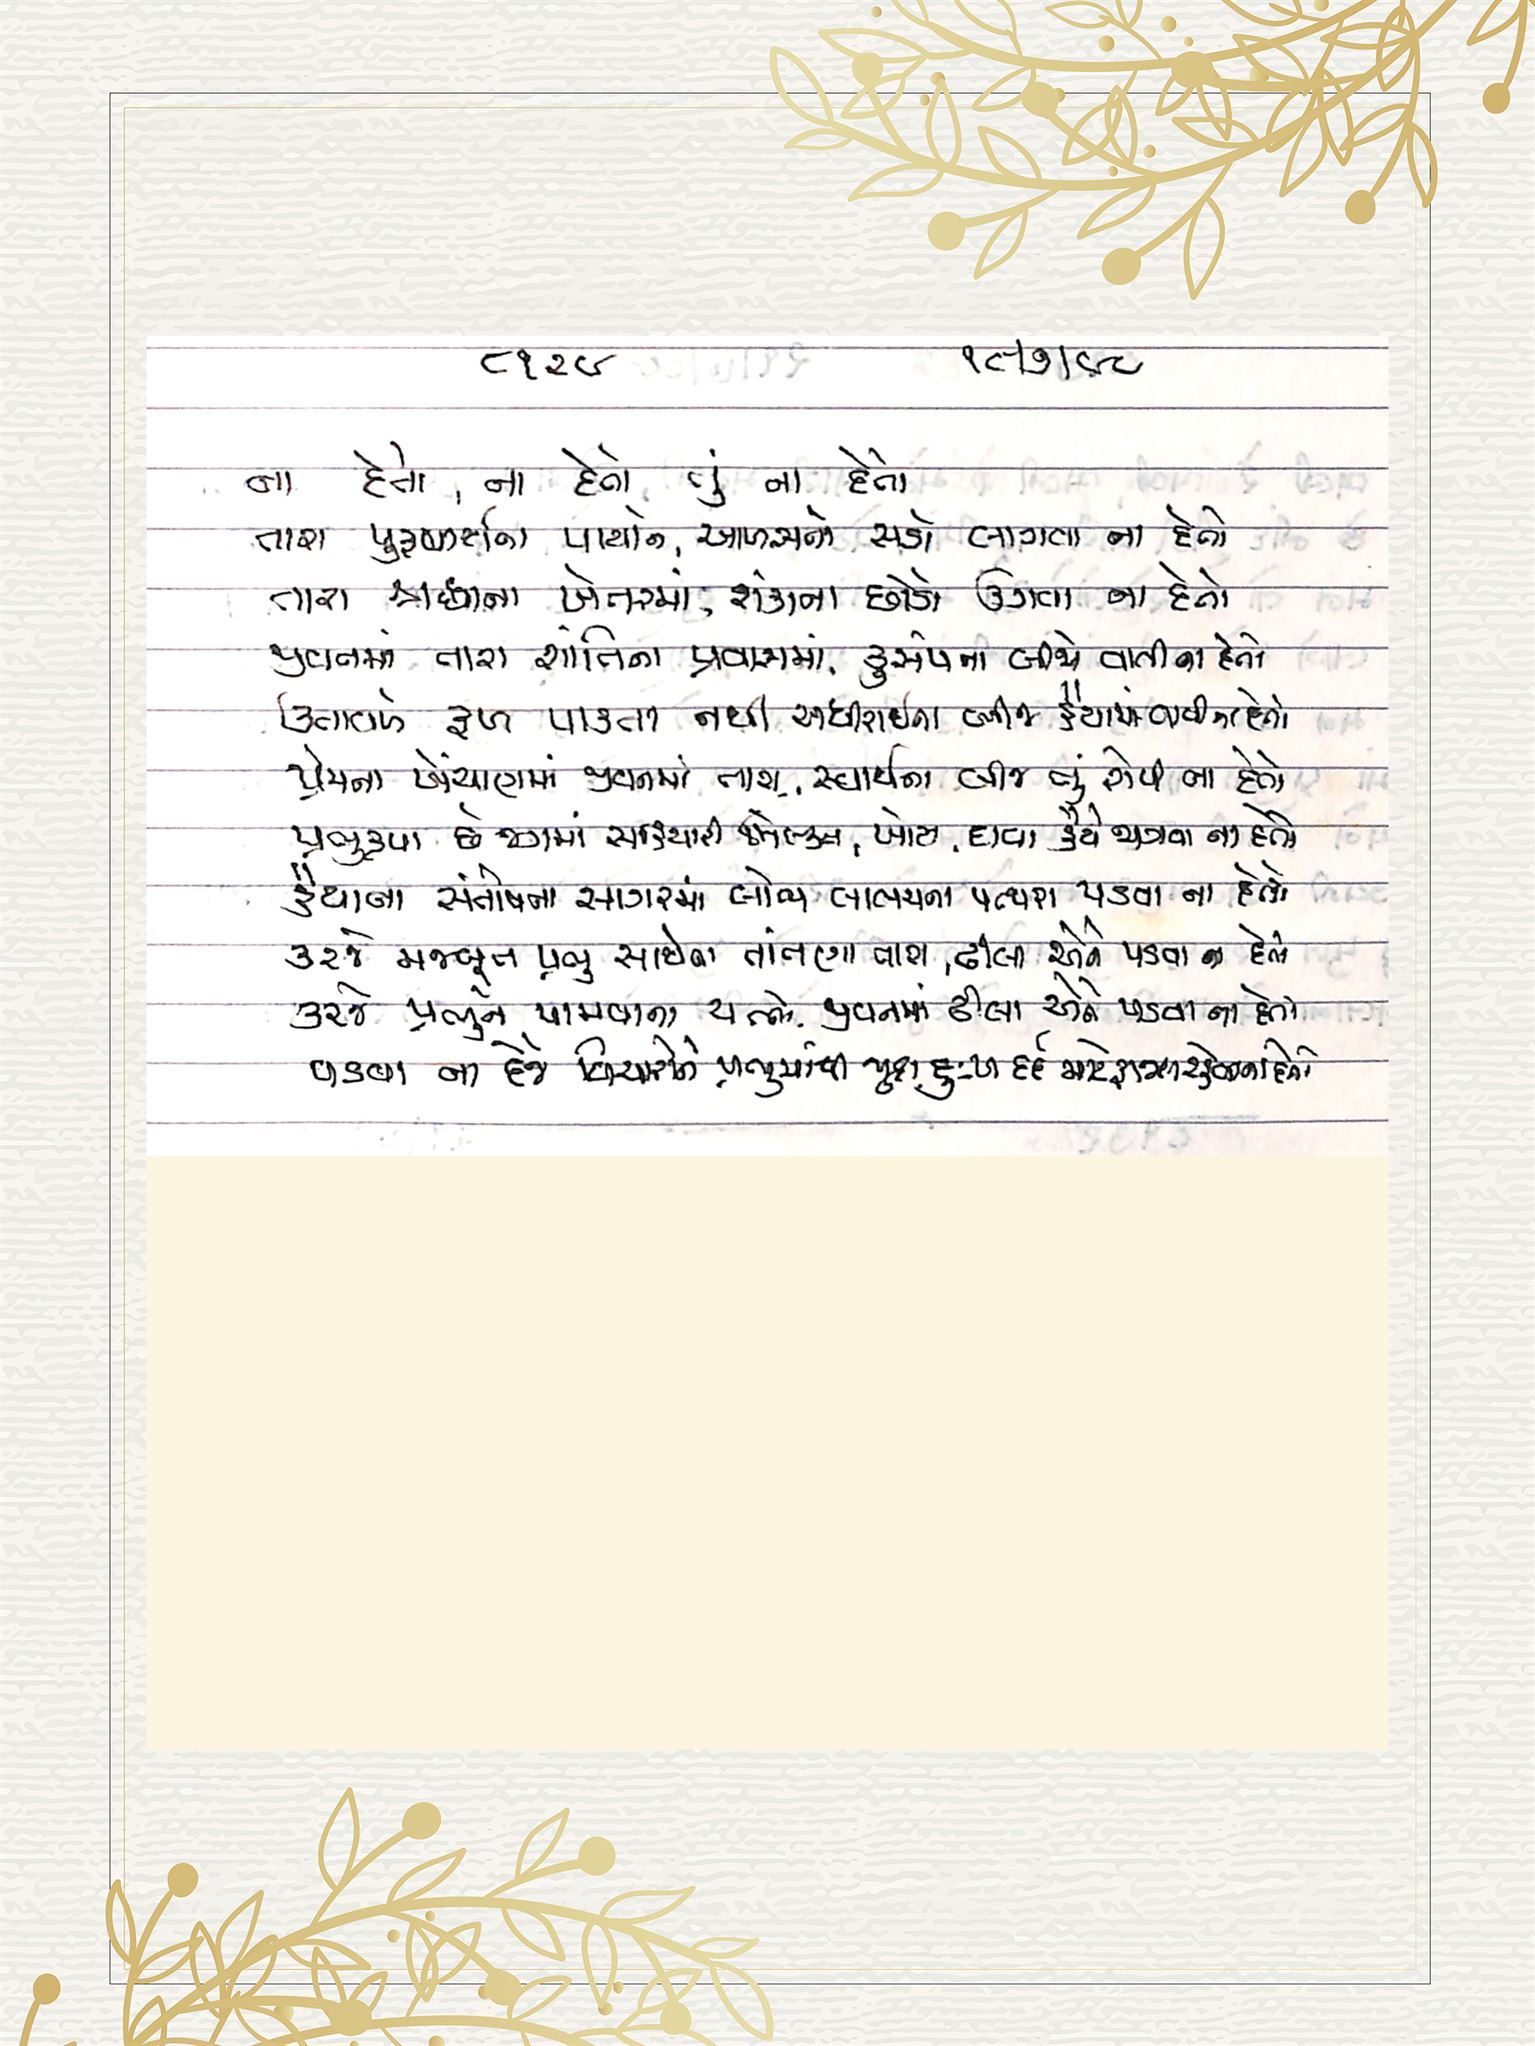 ૮૧૨૯ ૧૯/૭/૯૮
ના દેતો, ના દેતો તું ના દેતો
તારા પુરૂષાર્થના પાયાને, આળસનો સડો લાગવા ના દેતો
તારા શ્રદ્ધાના ખેતરમાં, શંકાના છોડો ઉગવા ના દેતો
જીવનમાં તારા શાંતિના પ્રવાસમાં, કુસંપના બીજો વાવી ના દેતો
ઉતાવળે ફળ પાકતા નથી અધીરાઈના બીજ હૈયામાં વાવી ના દેતો
પ્રેમના ખેંચાણમાં જીવનમાં તારા, સ્વાર્થના બીજ તું રોપી ના દેતો
પ્રભુકૃપા છે જગમાં સહિયારી મિલ્કત, ખોટા, દાવા હૈયે જાગવા ના દેતો
હૈયાના સંતોષના સાગરમાં લોભ લાલચના પત્થરા પડવા ના દેતો
કરજે મજબૂત પ્રભુ સાથેના તાંતણા તારા, ઢીલા એને પડવા ના દેતો
કરજે પ્રભુને પામવાના યત્નો, જીવનમાં ઢીલા એને પડવા ના દેતો
પડવા ના દેજે વિચારોને પ્રભુમાંથી જુદા, દુઃખ દર્દ માટે ના દેતો